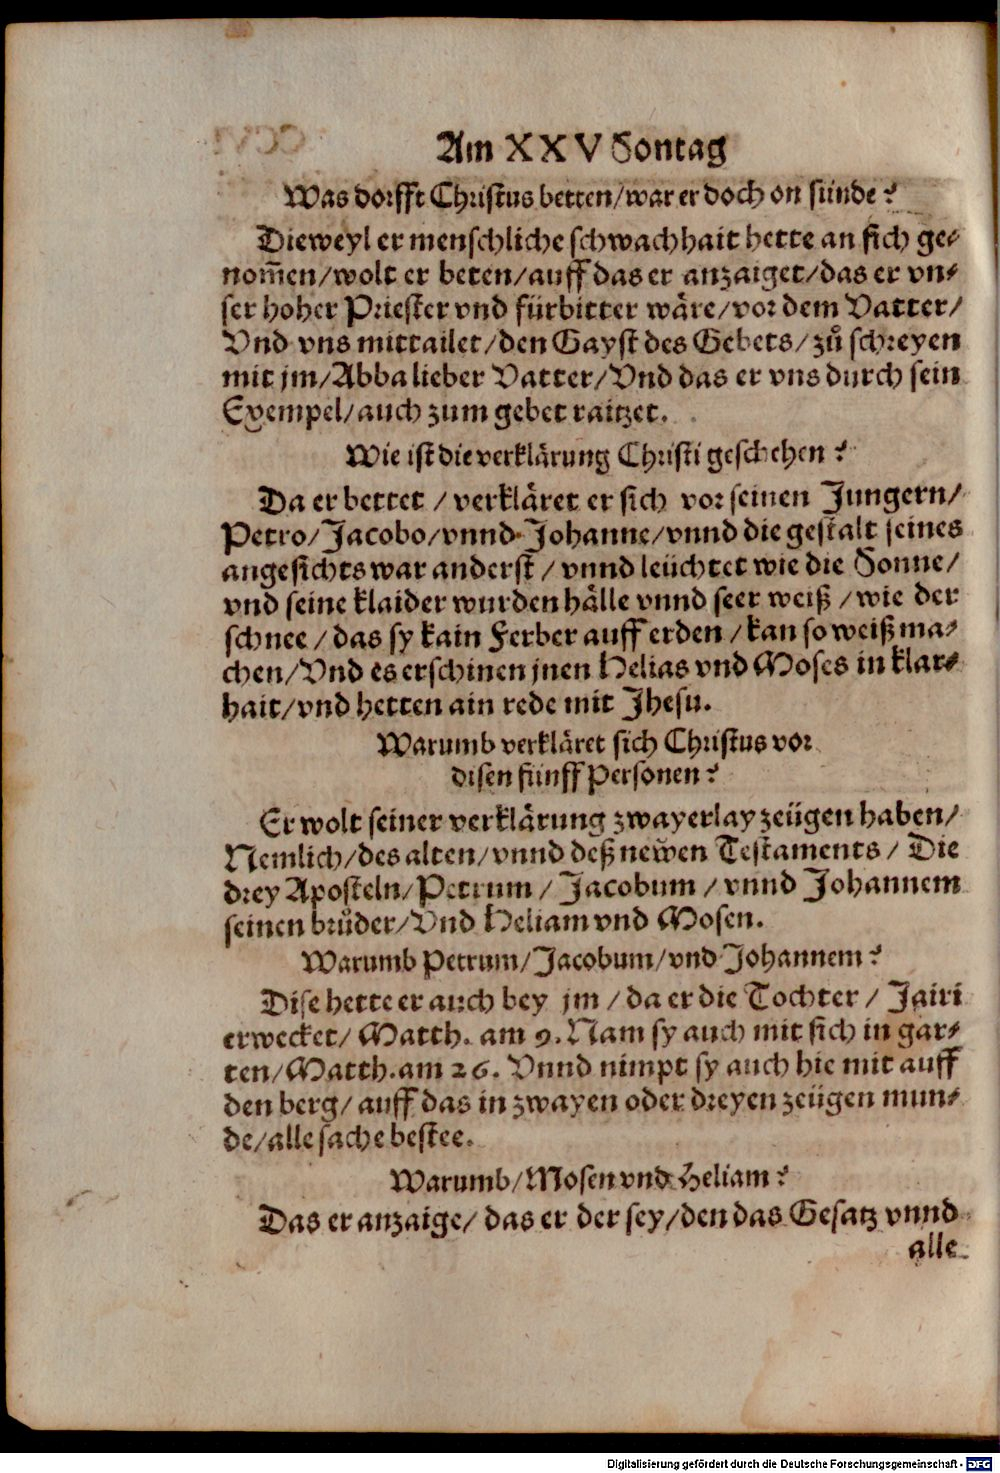 Am XXV Sontag
Was dorfft Christus betten/war er doch on sünde?
Dieweyl er menschliche schwachhait hette an sich ge-
nom̃en/wolt er beten/auff das er anzaiget/das er vn-
ser hoher Priester vnd fürbitter wäre/vor dem Vatter/
Vnd vns mittailet/den Gayst des Gebets/zů schreyen
mit jm/Abba lieber Vatter/Vnd das er vns durch sein
Exempel/auch zum gebet raitzet.
Wie ist die verklärung Christi geschehen?
Da er bettet/verkläret er sich vor seinen Jungern/
Petro/Jacobo/vnnd Johanne/vnnd die gestalt seines
angesichts war anderst/vnnd leüchtet wie die Sonne/
vnd seine klaider wurden hälle vnnd seer weiß/wie der
schnee/das sy kain Ferber auff erden/kan so weiß ma-
chen/Vnd es erschinen jnen Helias vnd Moses in klar-
hait/vnd hetten ain rede mit Jhesu.
Warumb verkläret sich Christus vor
disen fünff Personen?
Er wolt seiner verklärung zwayerlay zeügen haben/
Nemlich/des alten/vnnd deß newen Testaments/Die
drey Aposteln/Petrum/Jacobum/vnnd Johannem
seinen brůder/Vnd Heliam vnd Mosen.
Warumb Petrum/Jacobum/vnd Johannem?
Dise hette er auch bey jm/da er die Tochter/Jairi
erwecket/Matth. am 9. Nam sy auch mit sich in gar-
ten/Matth. am 26. Vnnd nimpt sy auch hie mit auff
den berg/auff das in zwayen oder dreyen zeügen mun-
de/alle sache bestee.
Warumb/Mosen vnd Heliam?
Das er anzaige/das er der sey/den das Gesatz vnnd
alle
Digitalisierung gefördert durch die Deutsche Forschungsgemeinschaft - DFG